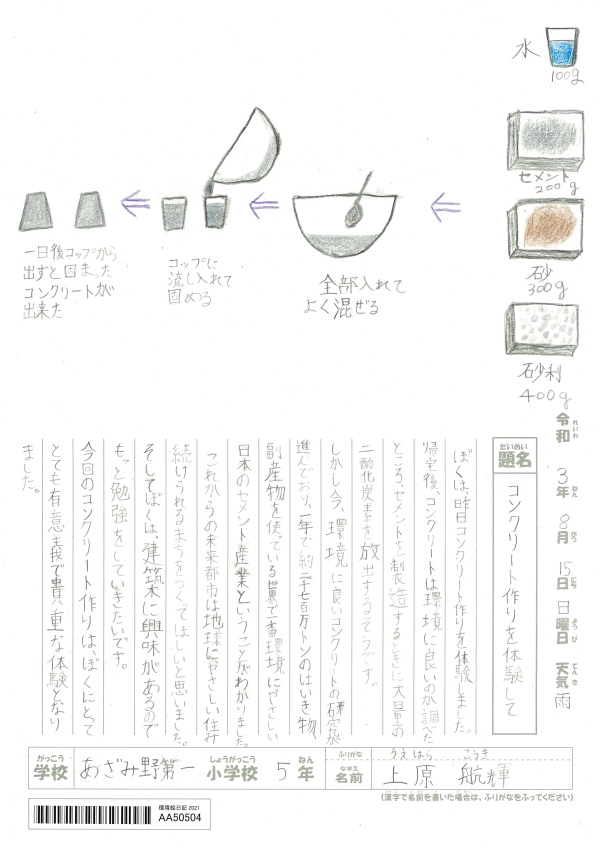 水
100g
セメント
200g
砂
300g
砂利
400g
全部入れて
よく混ぜる
コップに
流し入れて
固める
一日後コップから
出すと固まった
コンクリートが
出来た
令和 3年 8月 15日 日曜日 天気 雨
れいわ ねん がつ にち ようび てんき
だいめい
題名 コンクリート作りを体験して
ぼくは、昨日コンクリート作りを体験しました。
帰宅後、コンクリートは環境に良いのか調べた
ところ、セメントを製造するときに大量の
二酸化炭素を放出するそうです。
しかし今、環境に良いコンクリートの研究が
進んでおり、一年で約二千七百万トンのはいき物、
副産物を使っている世界で一番環境にやさしい
日本のセメント産業ということがわかりました。
これからの未来都市は地球にやさしい住み
続けられるまちをつくてほしいと思いました。
そしてぼくは、建築木に興味があるので
もっと勉強をしていきたいです。
今回のコンクリート作りは、ぼくにとって
とても有意義で貴重な体験となり
ました。
がっこう しょうがっこう ねん ふりがな うえはら こうき
学校 あざみ野第一 小学校 5年 なまえ 名前 上原 航輝
(漢字で名前を書いた場合は、ふりがなをふってください)
環境絵日記 2021
AA50504